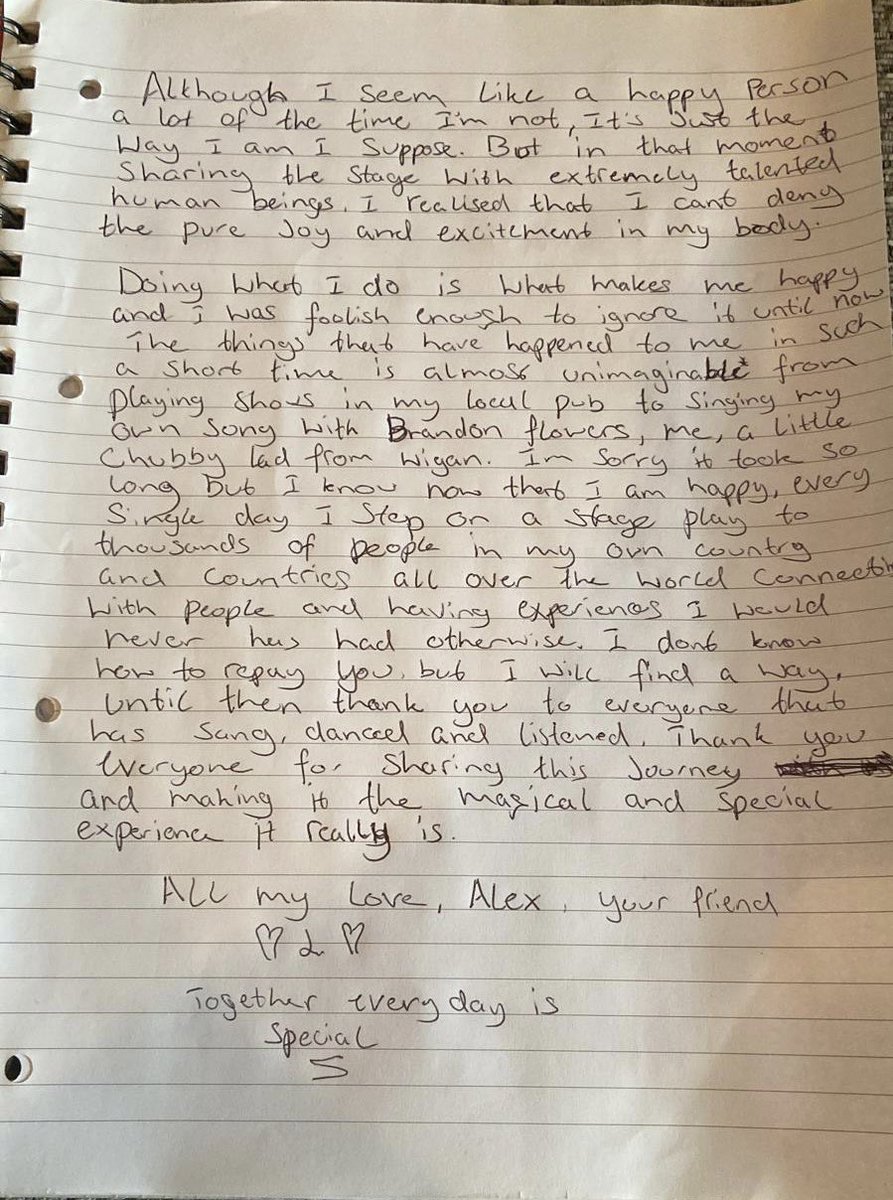 Although I seem like a happy Person
a lot of the time I'm not, It's just the
way I am I suppose. But in that moment
sharing the stage with extremely talented
human beings. I realised that I cant deny
the pure joy and excitement in my body.
Doing what I do is what makes me happy
and I was foolish enough to ignore it until now
The things that have happened to me in such
a short time is almost unimaginable from
playing shows in my local pub to singing my
own song with Brandon flowers, me, a little
chubby lad from wigan. Im sorry it took so
long but I know now that I am happy, every
single day I step on a stage play to
thousands of people in my own country
and countries all over the world connectin
with people and having experiences I would
never has had otherwise. I dont know
how to repay you, but I will find a way,
until then thank you to everyone that
has sang, danced and listened. Thank you
everyone for sharing this journey
and making it the magical and special
experience it really is.
All my love, Alex, your friend
Together every day is
special